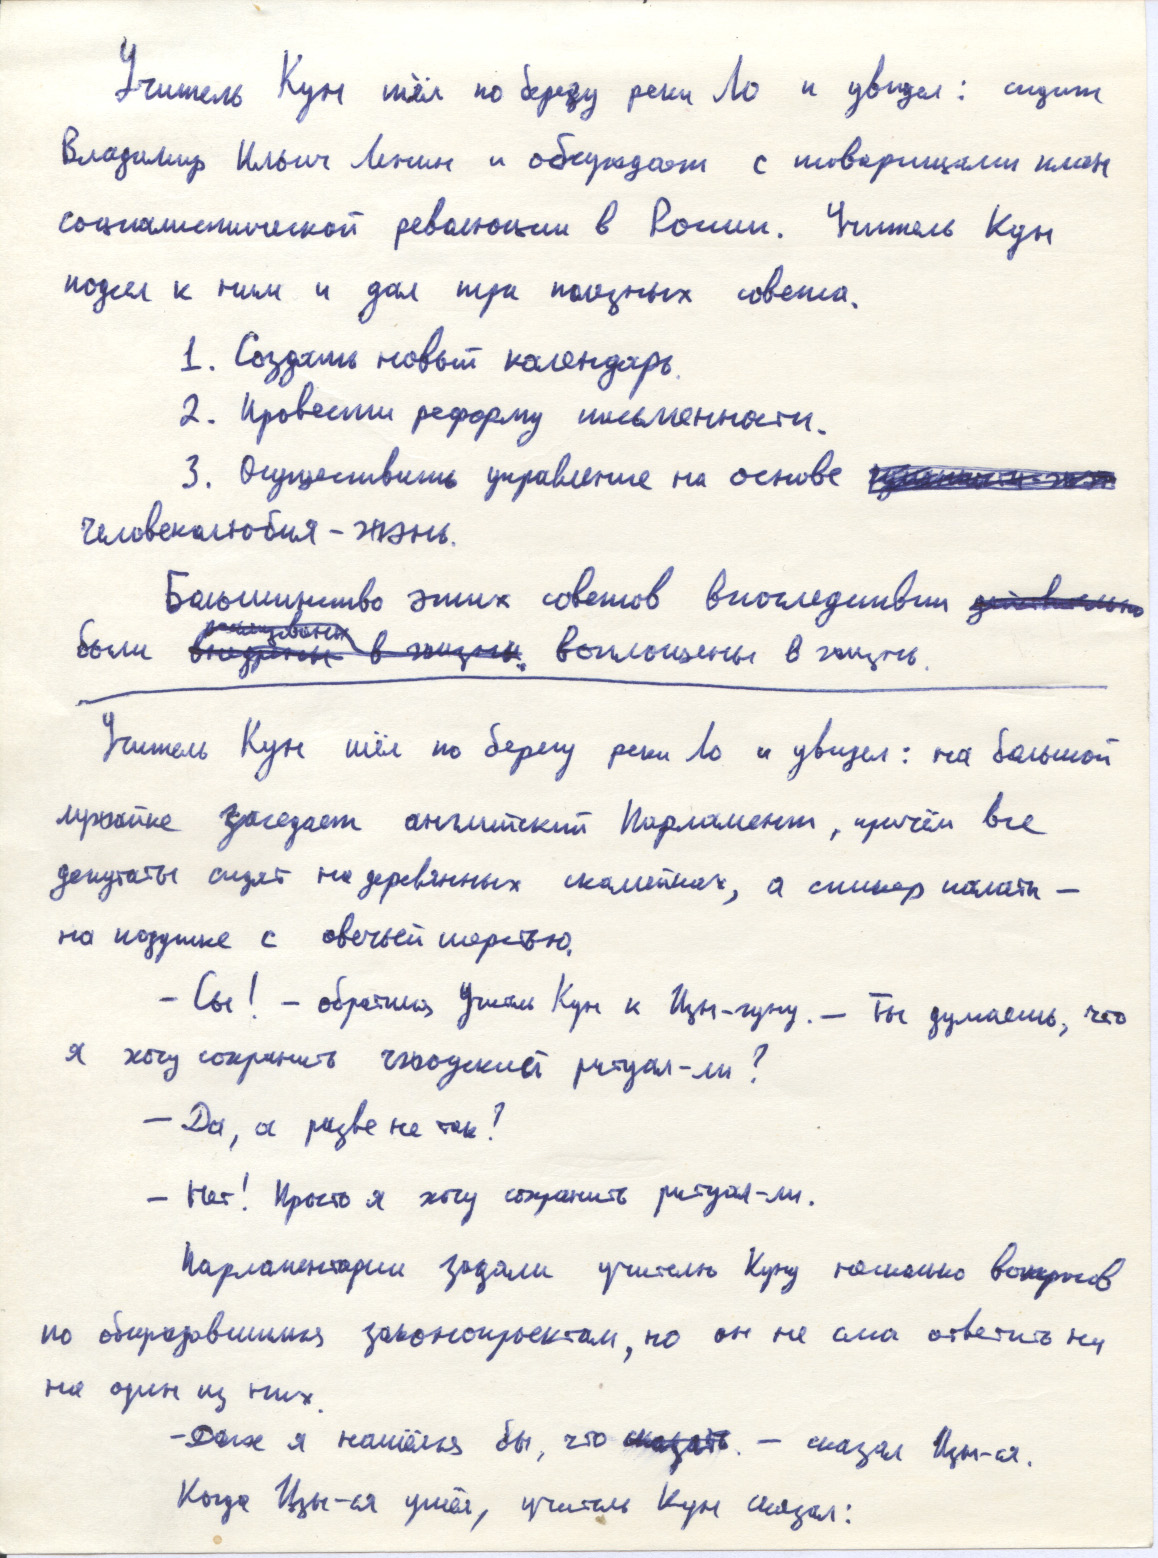 Учитель Кун шёл по берегу реки Ло и увидел: сидит
Владимир Ильич Ленин и обсуждает с товарищами план
социалистической революции в России. Учитель Кун
подошел к ним и дал три полезных совета.
1. Создать новый календарь.
2. Провести реформу письменности.
3. Осуществить управление на основе
человеколюбия - жэнь.
Большинство этих советов впоследствии
были воплощены в жизнь.
Учитель Кун шёл по берегу реки Ло и увидел: на большой
лужайке заседает английский Парламент, причём все
депутаты сидят на деревянных скамейках, а спикер палаты —
на подушке с овечьей шерстью.
- Сы! - обратился Учитель Кун к Цзы-гуну. - Ты думаешь, что
я хочу сохранить чжоуский ритуал-ли?
- Да, а разве не так?
- Нет! Просто я хочу сохранить ритуал-ли.
Парламентарии задали учителю Куну несколько вопросов
по законопроектам, но он не смог ответить ни
на один из них.
- Даже я нашёлся бы, что сказать. - сказал Цзы-ся.
Когда Цзы-ся ушёл, учитель Кун сказал: